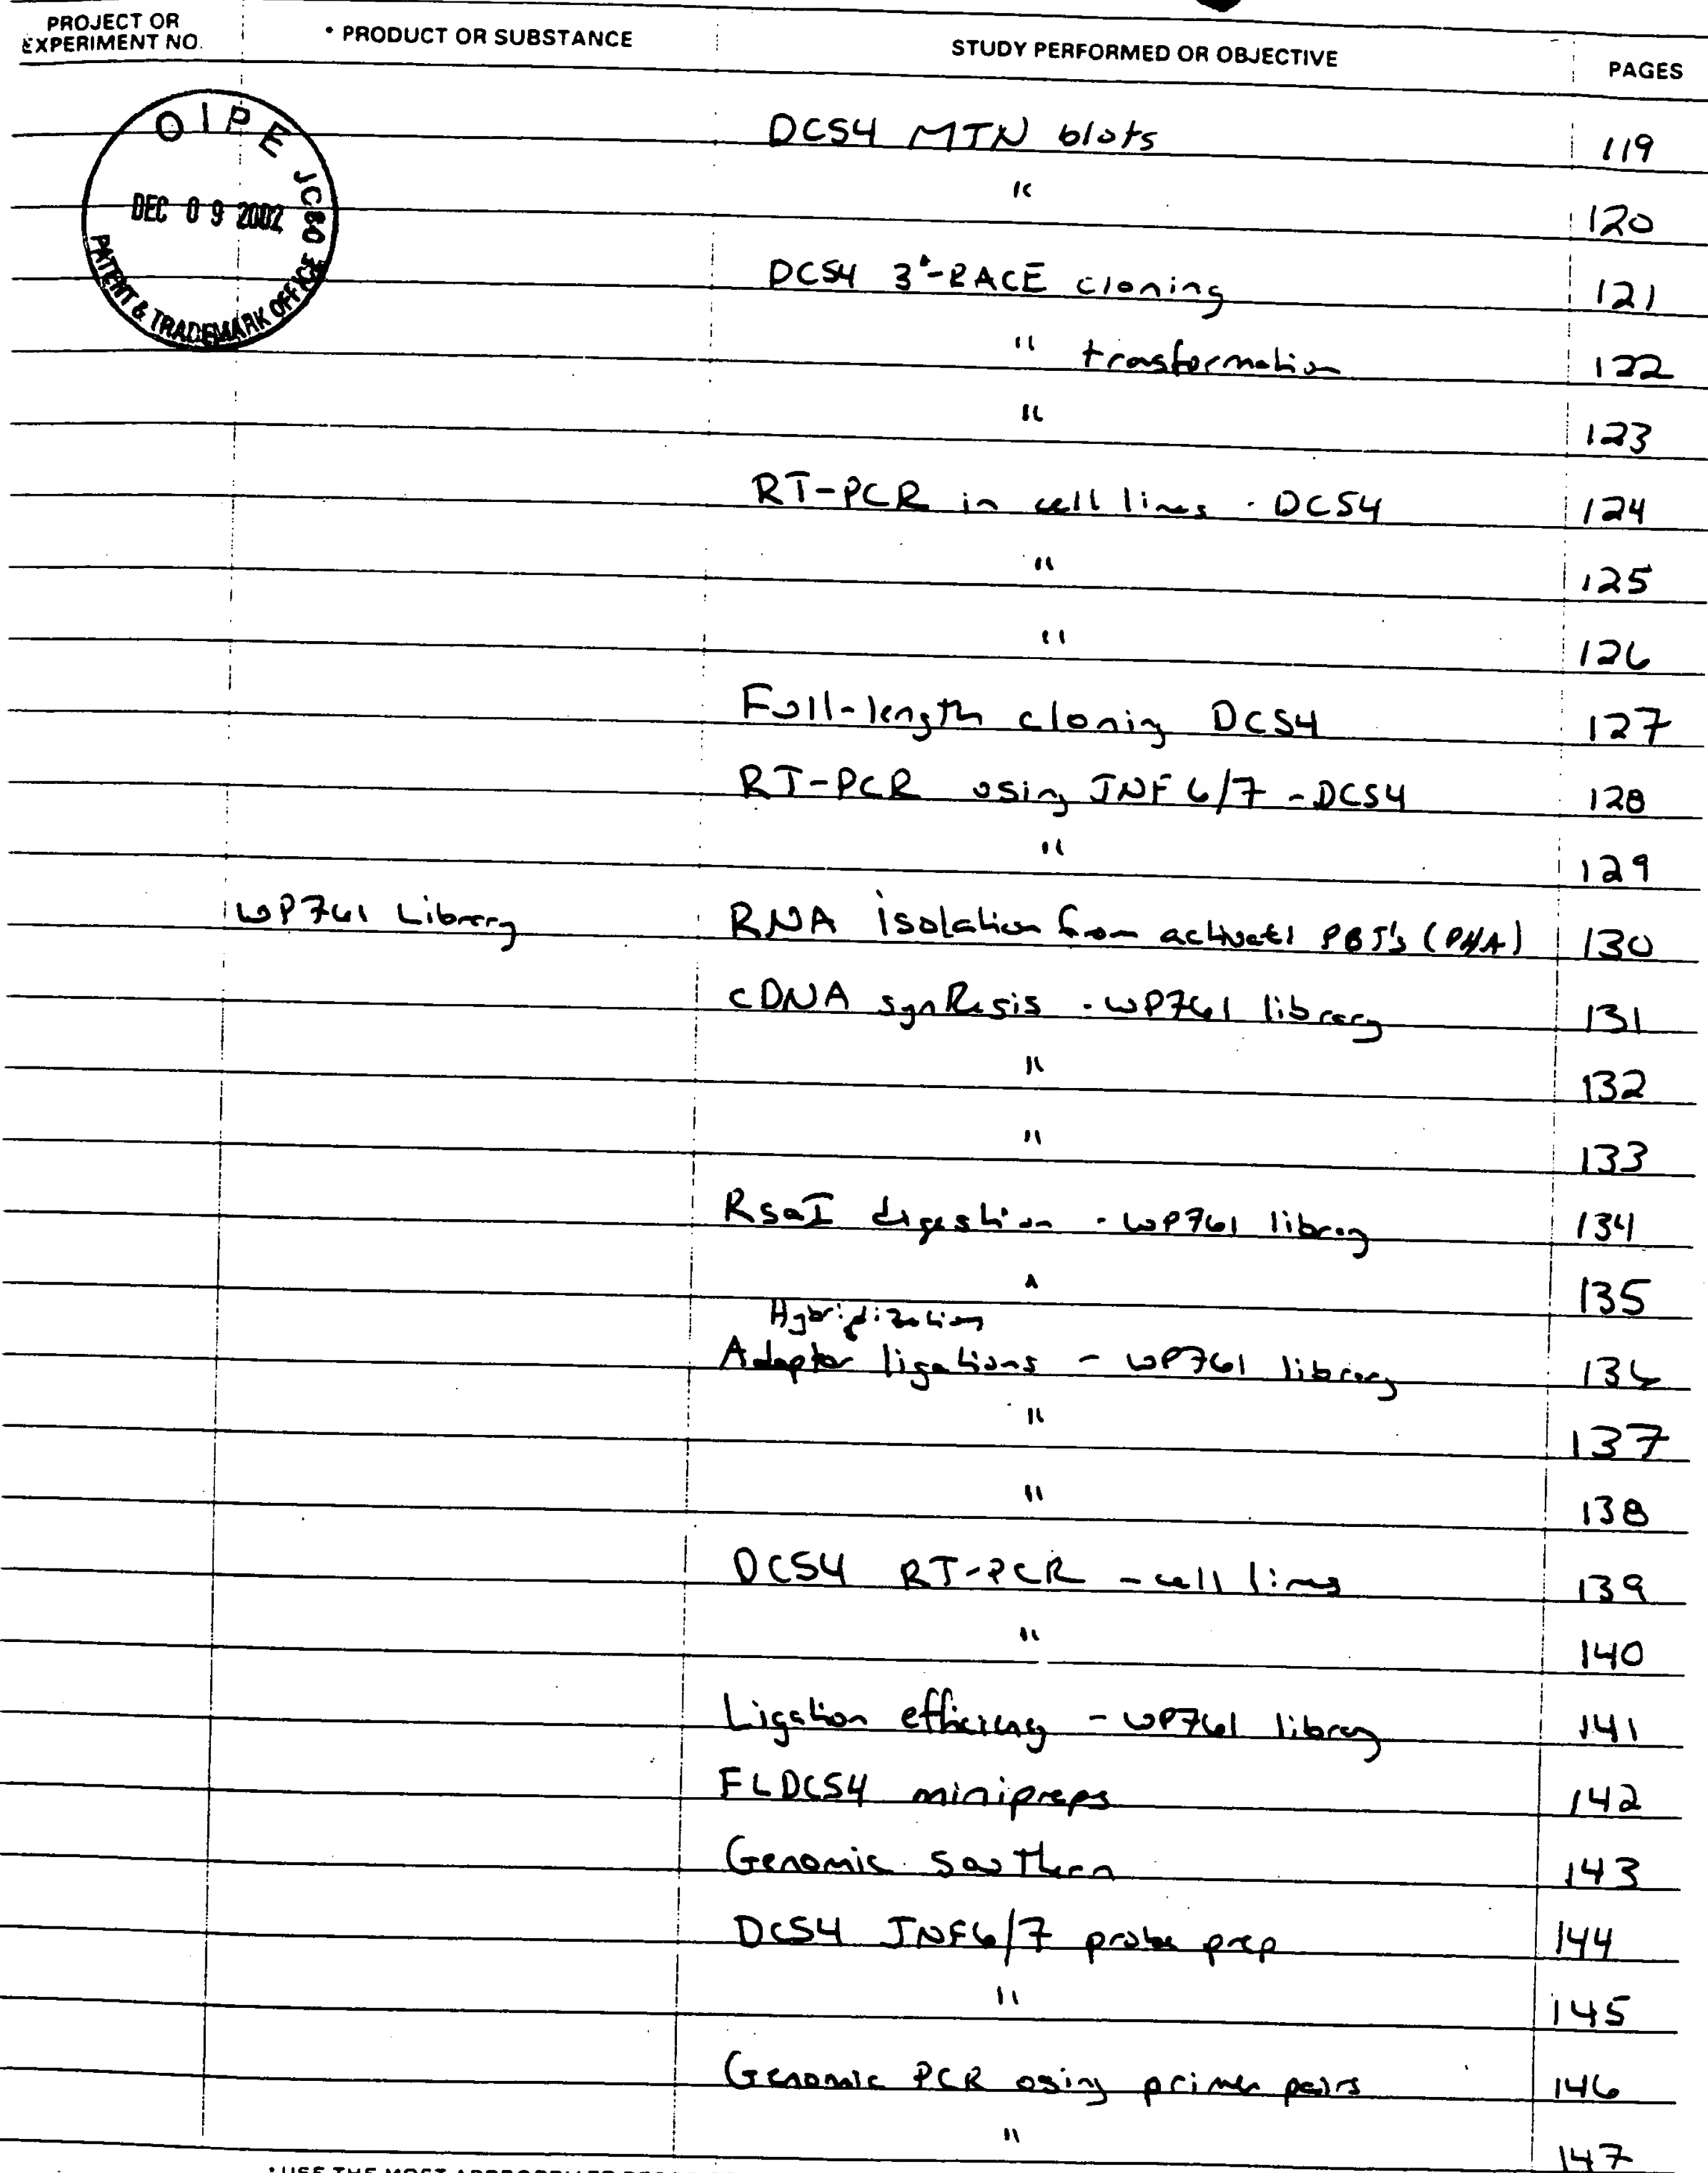 PROJECT OR EXPERIMENT NO. * PRODUCT OR SUBSTANCE STUDY PERFORMED OR OBJECTIVE PAGES
OIPE JC80
DEC 09 2002
PATENT & TRADEMARK OFFICE
DCS4 MTN blots 119
" 120
DCS4 3'-RACE cloning 121
" transformation 122
" 123
RT-PCR in cell lines - DCS4 124
" 125
" 126
Full-length cloning DCS4 127
RT-PCR using JNF6/7 - DCS4 128
" 129
WP761 Library RNA isolation from activated PBT's (PHA) 130
cDNA synthesis - WP761 library 131
" 132
" 133
RsaI digestion - WP761 library 134
" 135
Hybridization
Adaptor ligations - WP761 library 136
" 137
" 138
DCS4 RT-PCR - cell lines 139
" 140
Ligation efficiency - WP761 library 141
FLDCS4 minipreps 142
Genomic Southern 143
DCS4 JNF6/7 probe prep 144
" 145
Genomic PCR using primer pairs 146
" 147
* USE THE MOST APPROPRIATE